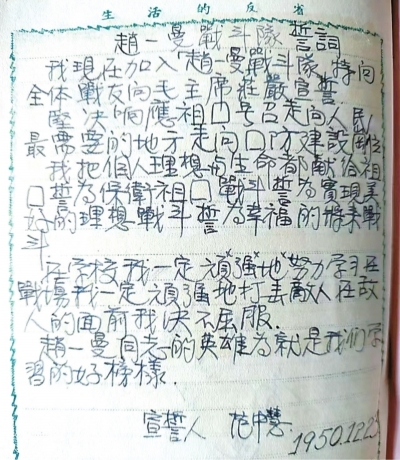 生活的反省
趙一曼戰斗隊誓詞
我現在加入"趙一曼戰斗隊"特向
全体戰友向毛主席莊嚴宣誓
堅決响應祖口号召走向人民
最需要的地方走向口防建設崗位
我把個人理想與生命都献給祖
口誓為保衛祖口戰斗誓為實現美
好的理想戰斗誓為幸福的將來戰
斗
在学校我一定頑強地努力学习在
戰場我一定頑強地打击敵人在敌
人的面前我决不屈服.
趙一曼同志的英雄為就是我们学
習的好榜樣.
宣誓人 范中慧
1950.12.23